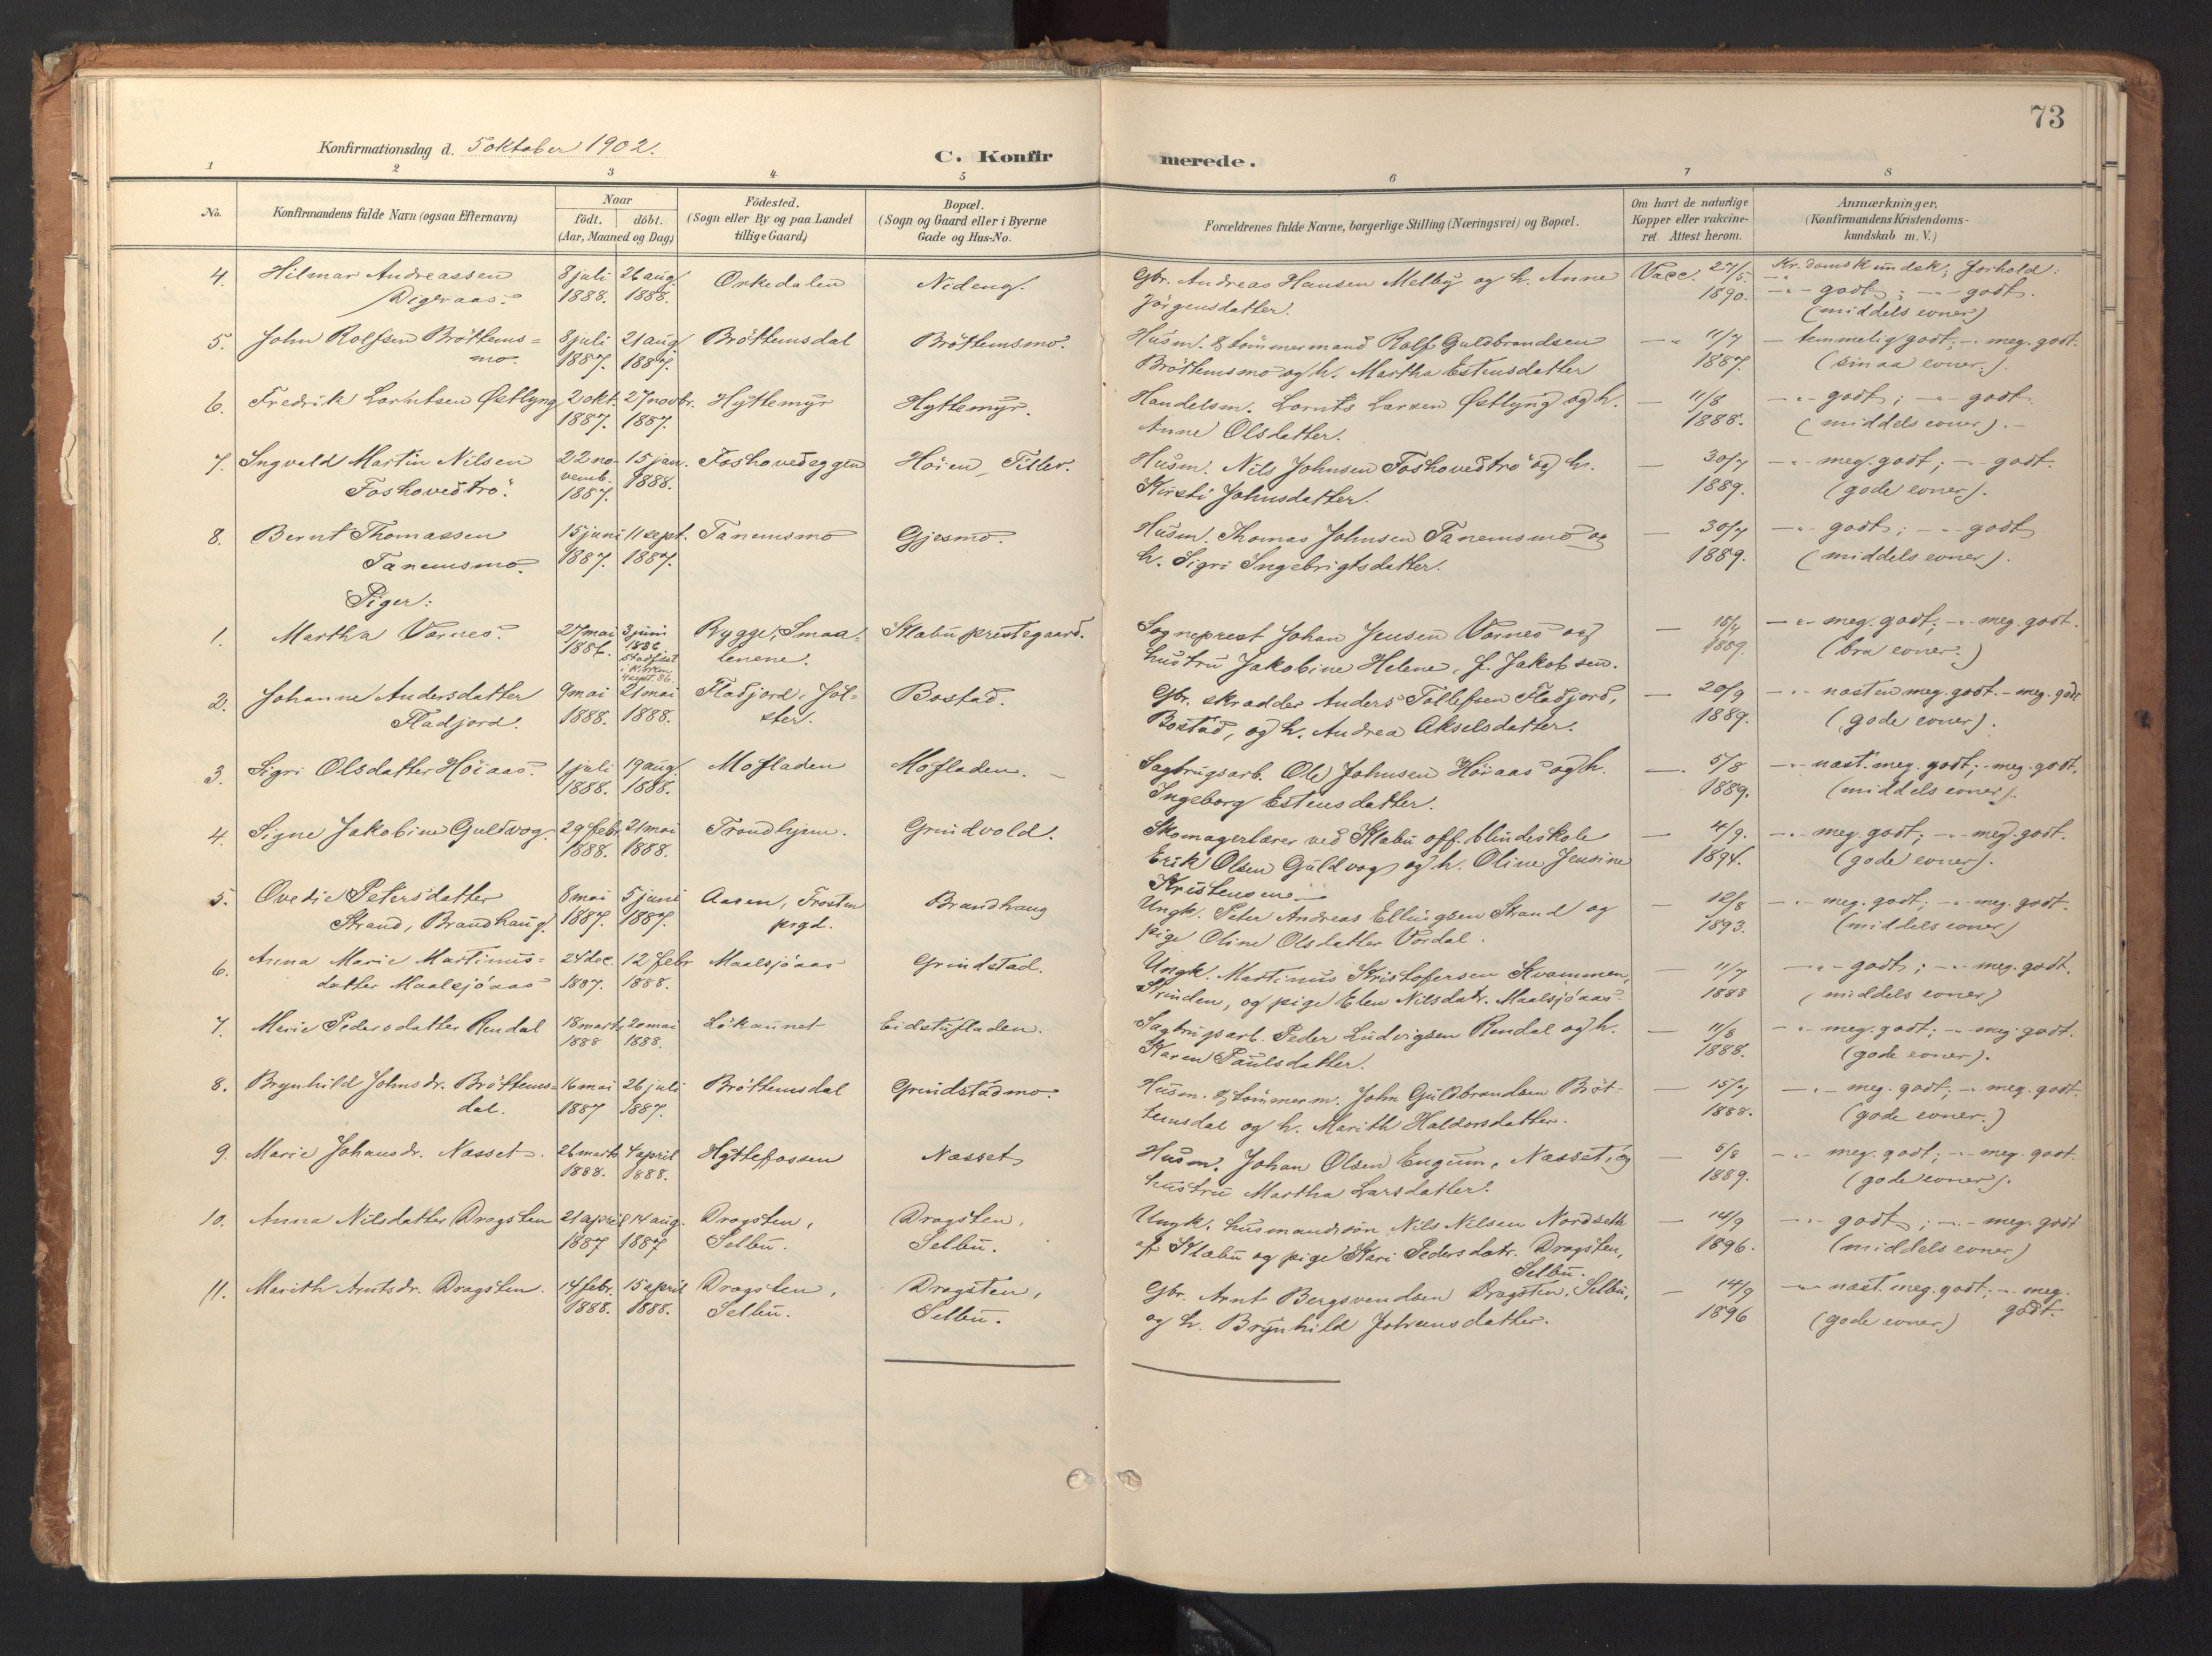 73
Konfirmationsdag d. 5 oktober 1902.
C. Konfirmerede.
1 2 3 4 5 6 7 8
No. Konfirmandens fulde Navn (ogsaa Efternavn) Naar födt. döbt. (Aar, Maaned og Dag) Födested. (Sogn eller By og paa Landet tillige Gaard) Bopæl. (Sogn og Gaard eller i Byerne Gade og Hus-No. Forældrenes fulde Navne, borgerlige Stilling (Næringsvei) og Bopæl. Om havt de naturlige Kopper eller vakcineret. Attest herom. Anmærkninger. (Konfirmandens Kristendomskundskab m. V.)
4. Hilmar Andreassen 8 juli 26 aug. Orkedalen Nideng. Gbr. Andreas Hansen Melby og h. Anne Vacc. 27/5 Kr.domskundsk; forhold:
Digeraas. 1888. 1888. Jörgensdatter. 1890. -"- godt; -"- godt.
(middels evner)
5. John Rolfsen Bröttems= 8 juli 21 aug. Bröttemsdal Bröttemsmo. Husm. & tömmermand Rolf Guldbrandsen -"- 11/7 - temmelig godt; -"- meg. godt.
mo. 1887. 1887. Bröttemsmo og h. Martha Estensdatter 1887. (smaa evner.).
6. Fredrik Lorntsen Östlyng 2 okt. 27 novbr. Hyttemyr Hyttemyr. Handelsm. Lornts Larsen Östlyng og h. — 11/8 -"- godt; -"- godt.
1887. 1887. Anne Olsdatter. 1888. (middels evner). -
7. Ingvald Martin Nilsen 22 no- 15 jan. Foshovedeggen Höien, Tiller. Husm. Nils Johnsen Foshovedtrö og h. — 30/7 -"- meg. godt; -"- godt.
Foshovedtrö. vemb. 1887. 1888. Kirsti Johnsdatter. 1889. (gode evner).
8. Bernt Thomassen 15 juni 11 sept. Tanemsmo Gjesmo. Husm. Thomas Johnsen Tanemsmo og — 30/7 -"- godt; -"- godt
Tanemsmo. 1887. 1887. h. Sigri Ingebrigtsdatter. 1889. (middels evner).
Piger:
1. Martha Vornes. 27 mai 3 juni Rygge, Smaa- Klæbu prestegaard. Sogneprest Johan Jensen Vornes og — 18/4 -"- meg. godt; -"- meg. godt.
1886. 1886 stadfæst i kirken 4 sept. 86. lenene. hustru Jakobine Helene, f. Jakobsen. 1889. (bra evner.)
2. Johanne Andersdatter 9 mai 21 mai Fladjord, Jöl- Bostad. Gbr. skrædder Anders Tollefsen Fladjord, — 20/9 -"- næsten meg. godt. - meg. godt
Fladjord. 1888. 1888. ster. Bostad, og h. Andrea Akselsdatter. 1889. (gode evner).
3. Sigri Olsdatter Höiaas. 1 juli 19 aug. Mofladen Mofladen. Sagbrugsarb. Ole Johnsen Höiaas og h. — 5/8 -"- næst. meg. godt; - meg. godt.
1888. 1888. Ingeborg Estensdatter. 1889. (middels evner).
4. Signe Jakobine Guldvog. 29 febr 21 mai Trondhjem. Grindvold. Skomagerlærer ved Klæbu off. blindeskole — 4/9. -"- meg. godt; -"- meg. godt.
1888. 1888. Erik Olsen Guldvog og h. Oline Jensine 1894. (gode evner).
Kristensen.
5. Ovedie Petersdatter 8 mai 5 juni Aasen, Frosten Brandhaug Ungk. Peter Andreas Ellingsen Strand og — 12/8 -"- meg. godt; -"- meg. godt.
Strand, Brandhaug. 1887. 1887. prgd. pige Oline Olsdatter Vordal. 1893. (middels evner)
6. Anna Marie Martinus= 24 dec. 12 febr Maalsjöaas Grindstad. Ungk. Martinus Kristofersen Kvammen, — 11/7 -"- godt; -"- meg. godt.
datter Maalsjöaas 1887. 1888. Strinden, og pige Elen Nilsdatr. Maalsjöaas. 1888 (middels evner)
7. Marie Pedersdatter Rendal 18 marts 20 mai Lökaunet Eidstufladen. Sagbrugsarb. Peder Ludvigsen Rendal og h. — 11/8 -"- meg. godt; -"- meg. godt.
1888 1888. Karen Paulsdatter. 1888. (gode evner).
8. Brynhild Johnsdr. Bröttems= 16 mai 26 juli Bröttemsdal Grindstadmo. Husm. & tömmerm. John Guldbrandsen Bröt- — 15/7 -"- meg. godt; -"- meg. godt.
dal. 1887 1887. temsdal og h. Marith Haldorsdatter. 1888. (gode evner.)
9. Marie Johansdr. Næsset. 26 marts 4 april Hyttefossen Næsset Husm. Johan Olsen Engum, Næsset, og — 5/8 -"- meg. godt; -"- meg. godt.
1888. 1888. hustru Martha Larsdatter. 1889. (gode evner).
10. Anna Nilsdatter Dragsten 21 april 14 aug. Dragsten, Dragsten, Ungk. husmandssön Nils Nilsen Nordseth — 14/9 -"- godt; -"- meg. godt
1887 1887 Selbu. Selbu. af Klæbu og pige Kari Pedersdatr. Dragsten, 1896. (middels evner)
Selbu.
11. Marith Arntsdr. Dragsten. 14 febr. 15 april Dragsten, Dragsten, Gbr. Arnt Bergsvendsen Dragsten, Selbu, — 14/9 -"- næst. meg. godt; -"- meg.
1888. 1888. Selbu. Selbu. og h. Brynhild Johansdatter. 1896 (gode evner) godt.